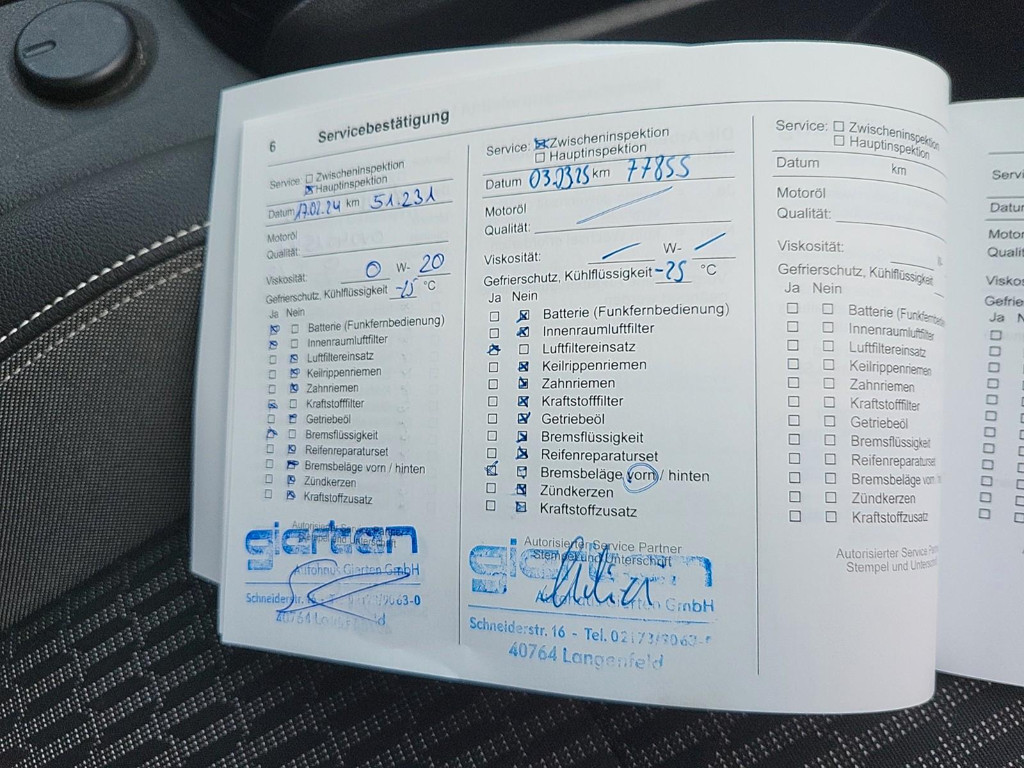 6 Servicebestätigung
Service: Zwischeninspektion
Hauptinspektion
Datum 17.02.24 km 51.231
Motoröl
Qualität:
Viskosität: 0 W- 20
Gefrierschutz, Kühlflüssigkeit -25 °C
Ja Nein
Batterie (Funkfernbedienung)
Innenraumluftfilter
Luftfiltereinsatz
Keilrippenriemen
Zahnriemen
Kraftstofffilter
Getriebeöl
Bremsflüssigkeit
Reifenreparaturset
Bremsbeläge vorn / hinten
Zündkerzen
Kraftstoffzusatz
Autorisierter Service Partner
Stempel und Unterschrift
gierten
Autohaus Gierten GmbH
Schneiderstr. 16 - Tel. 02173/9063-0
40764 Langenfeld
Service: Zwischeninspektion
Hauptinspektion
Datum 03.03.25 km 77855
Motoröl
Qualität:
Viskosität: W-
Gefrierschutz, Kühlflüssigkeit -25 °C
Ja Nein
Batterie (Funkfernbedienung)
Innenraumluftfilter
Luftfiltereinsatz
Keilrippenriemen
Zahnriemen
Kraftstofffilter
Getriebeöl
Bremsflüssigkeit
Reifenreparaturset
Bremsbeläge vorn / hinten
Zündkerzen
Kraftstoffzusatz
Autorisierter Service Partner
Stempel und Unterschrift
gierten
Autohaus Gierten GmbH
Schneiderstr. 16 - Tel. 02173/9063-0
40764 Langenfeld
Service: Zwischeninspektion
Hauptinspektion
Datum km
Motoröl
Qualität:
Viskosität:
Gefrierschutz, Kühlflüssigkeit
Ja Nein
Batterie (Funkfernbe
Innenraumluftfilter
Luftfiltereinsatz
Keilrippenriemen
Zahnriemen
Kraftstofffilter
Getriebeöl
Bremsflüssigkeit
Reifenreparaturset
Bremsbeläge vorn
Zündkerzen
Kraftstoffzusatz
Autorisierter Service Pa
Stempel und Unterschr
Servi
Datu
Motor
Qualit
Viskos
Gefrie
Ja N